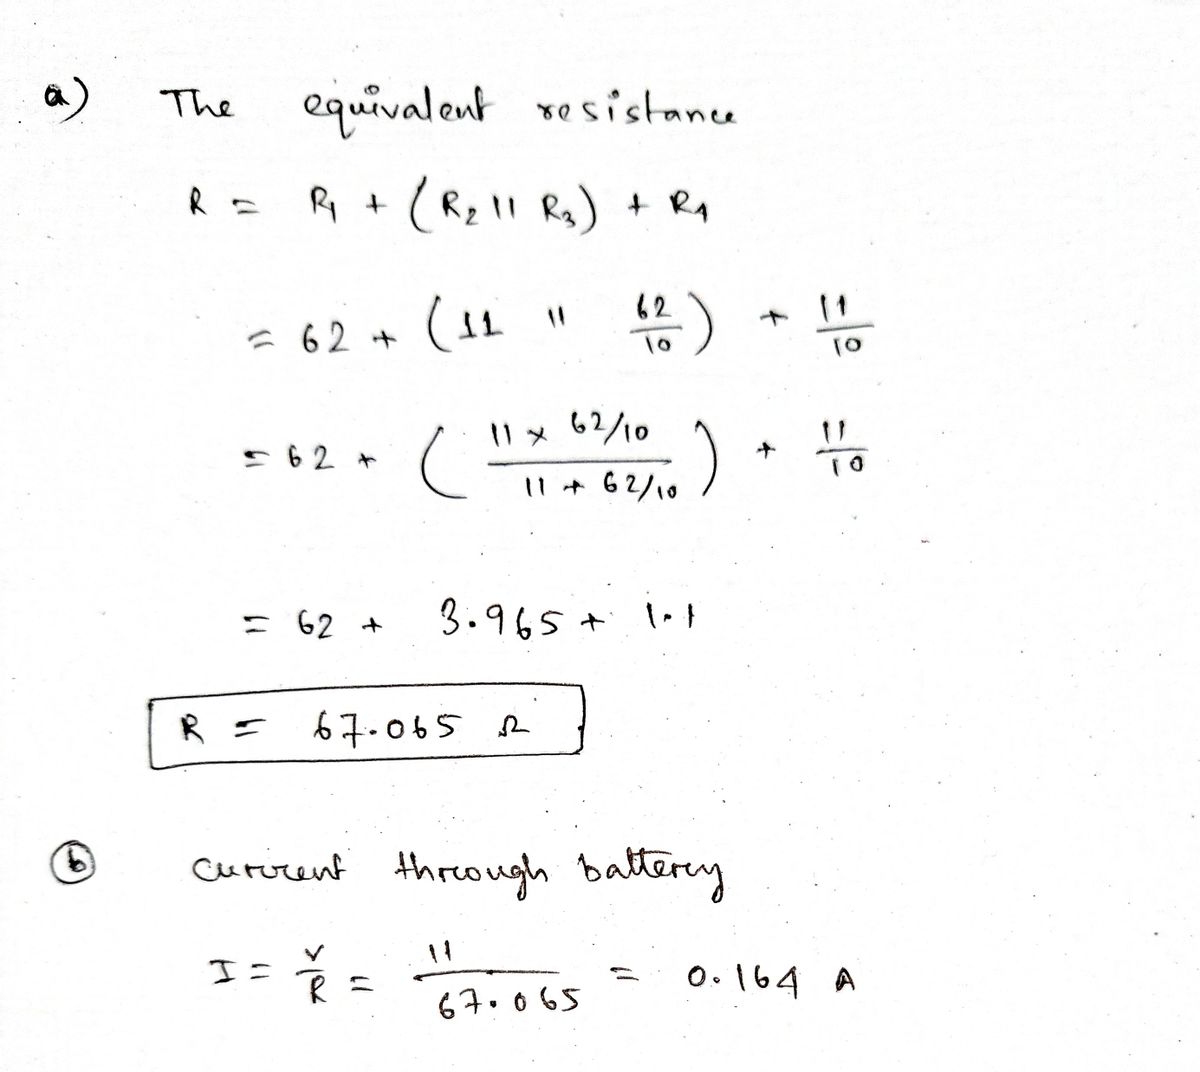 a) The equivalent resistance
R = R₁ + (R₂ || R₃) + R₄
= 62 + (11 || 62/10) + 11/10
= 62 + (11 × 62/10 / 11 + 62/10) + 11/10
= 62 + 3.965 + 1.1
R = 67.065 Ω
b current through battery
I = V/R = 11/67.065 = 0.164 A